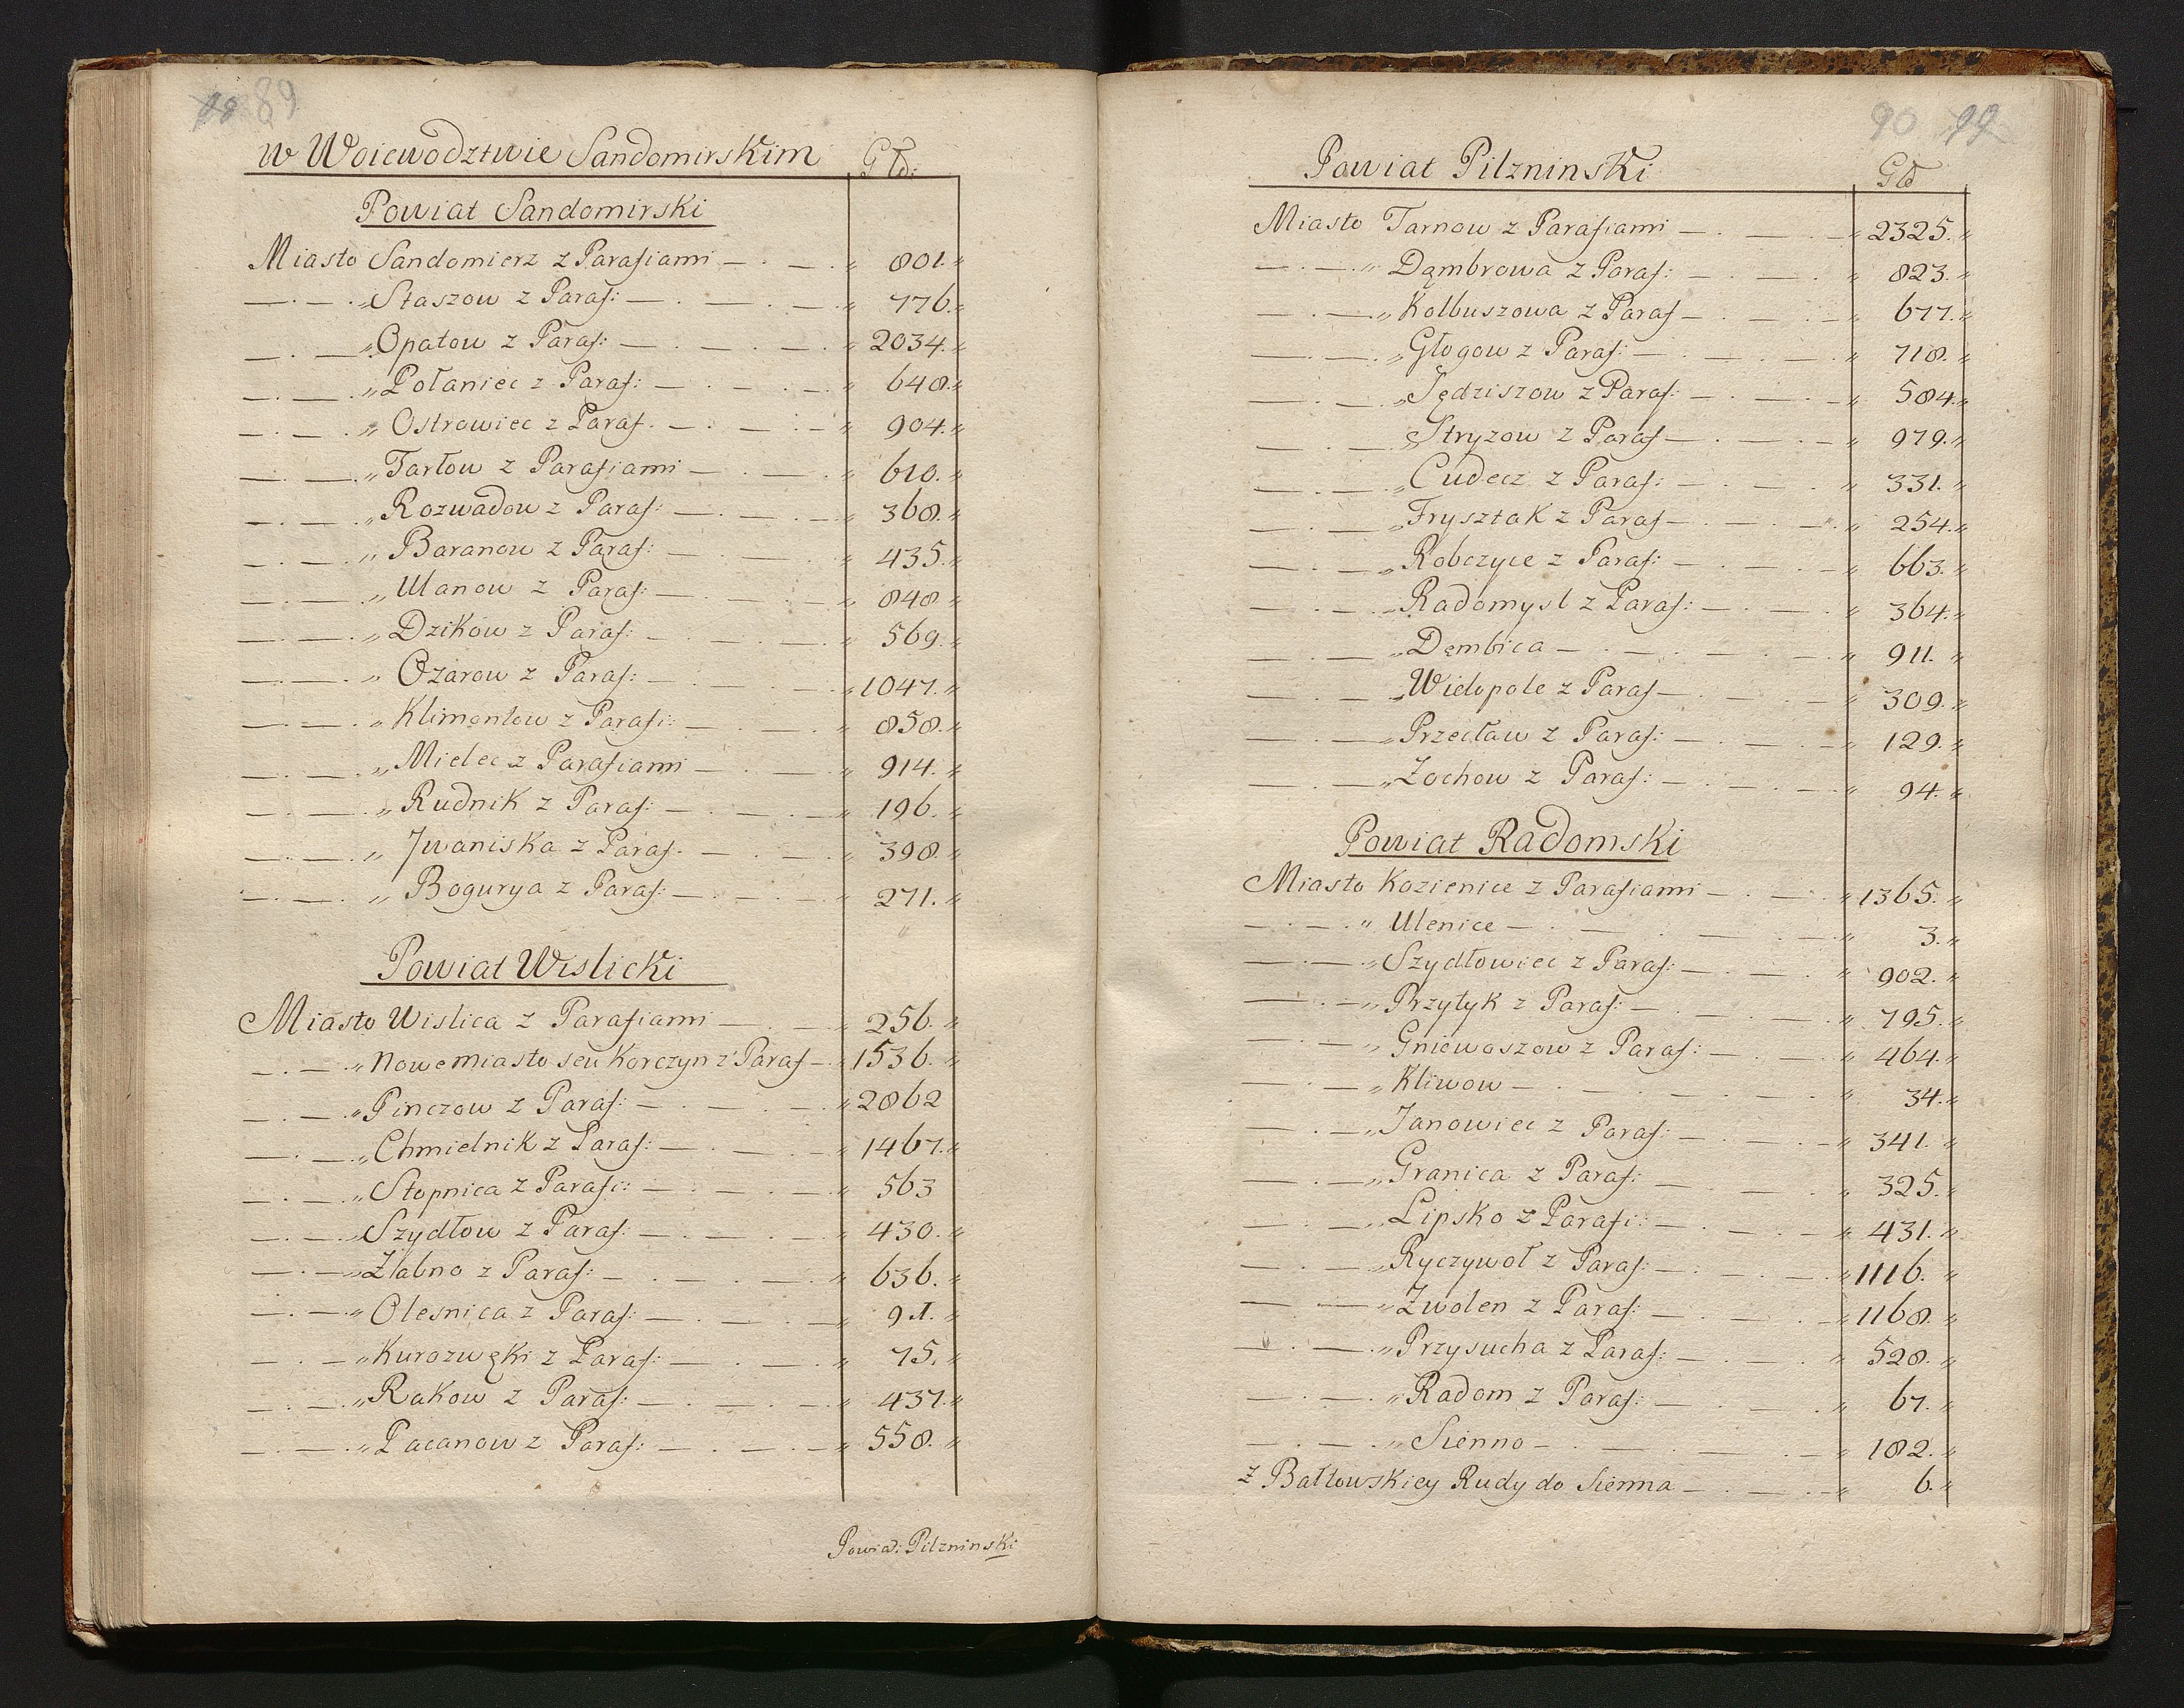 89
w Woiewodztwie Sandomirskim Głd:
Powiat Sandomirski
Miasto Sandomierz z Parafiami — . — . „ 801. „
— . — . „ Staszow z Paraf: — . — . — „ 776. „
— . — „ Opatow z Paraf: — . — . — . „ 2034. „
— . — . „ Połaniec z Paraf: — . — . — „ 648. „
— . — . „ Ostrowiec z Paraf. — . — . — „ 904. „
— . — . „ Tarłow z Parafiami — . — . „ 610. „
— . — . „ Rozwadow z Paraf: — . — . — „ 368. „
— . — . „ Baranow z Paraf: — . — . — „ 435. „
— . — . „ Ulanow z Paraf: — . — . — „ 848 „
— . — . „ Dzików z Paraf: — . — . — „ 569. „
— . — . „ Ozarow z Paraf: — . — . — „ 1047. „
— . — . „ Klimontow z Parafi: — . — . „ 858. „
— . — . „ Mielec z Parafiami — . — . „ 914. „
— . — . „ Rudnik z Paraf: — . — . — „ 196. „
— . — . „ Jwaniska z Paraf. — . — . — „ 398. „
— . — . „ Bogurya z Paraf: — . — . — „ 271. „
Powiat Wislicki
Miasto Wislica z Parafiami — . — „ 256. „
— . — „ Nowe miasto seu Korczyn z Paraf — „ 1536. „
— . — „ Pinczow z Paraf: — . — . — „ 2862
— . — . „ Chmielnik z Paraf: — . — . „ 1467. „
— . — . „ Stopnica z Parafi: — . — . — „ 563
— . — . „ Szydłow z Paraf: — . — . — „ 430. „
— . — „ Żabno z Paraf: — . — . — „ 636. „
— . — . „ Olesnica z Paraf: — . — . — „ 91. „
— . — „ Kurozwęki z Paraf: — . — . „ 75. „
— . — . „ Rakow z Paraf: — . — . — „ 437. „
— . — . „ Pacanow z Paraf: — . — . — „ 558. „
Powia: Pilzninski
90 99
Powiat Pilzninski Głd
Miasto Tarnow z Parafiami — . — . — „ 2325. „
— . — . „ Dąmbrowa z Paraf: — . — . „ 823. „
— . — „ Kolbuszowa z Paraf — . — . — „ 677. „
— . — . „ Głogow z Paraf: — . — . — „ 718. „
— . — . „ Sędziszow z Paraf: — . — . — „ 584. „
— . — . „ Stryzow z Paraf — . — . — „ 979. „
— . — . „ Cudecz z Paraf: — . — . „ 331. „
— . — . „ Frysztak z Paraf — . — . „ 254. „
— . — . „ Robczyce z Paraf: — . — . — „ 663. „
— . — . „ Radomysl z Paraf: — . — . — „ 364. „
— . — „ Dęmbica — . — . — . — „ 911. „
— . — . „ Wielopole z Paraf — . — . — „ 309. „
— . — „ Przecław z Paraf: — . — . — „ 129. „
— . — . „ Zochow z Paraf: — . — . — „ 94. „
Powiat Radomski
Miasto Kozienice z Parafiami — . — . „ 1365. „
— . — . „ Ulenice — . — . — . — „ 3. „
— . — „ Szydłowiec z Paraf: — . — . „ 902. „
— . — „ Przytyk z Paraf: — . — . — „ 795. „
— . — „ Gniewoszow z Paraf: — . — . „ 464. „
— . — „ Kliwow — . — . — . — . „ 34. „
— . — „ Janowiec z Paraf: — . — . — „ 341. „
— . — . „ Granica z Paraf: — . — . „ 325. „
— . — „ Lipsko z Parafi: — . — . — „ 431. „
— . — . „ Ryczywoł z Paraf: — . — . — „ 1116. „
— . — „ Zwolen z Paraf: — . — . — „ 1168. „
— . — . „ Przysucha z Paraf: — . — . „ 528. „
— . — . „ Radom z Paraf: — . — . „ 67. „
— . — . „ Sienno — . — . — . — „ 182. „
z Bałtowskiey Rudy do Sienna — . — . — „ 6. „